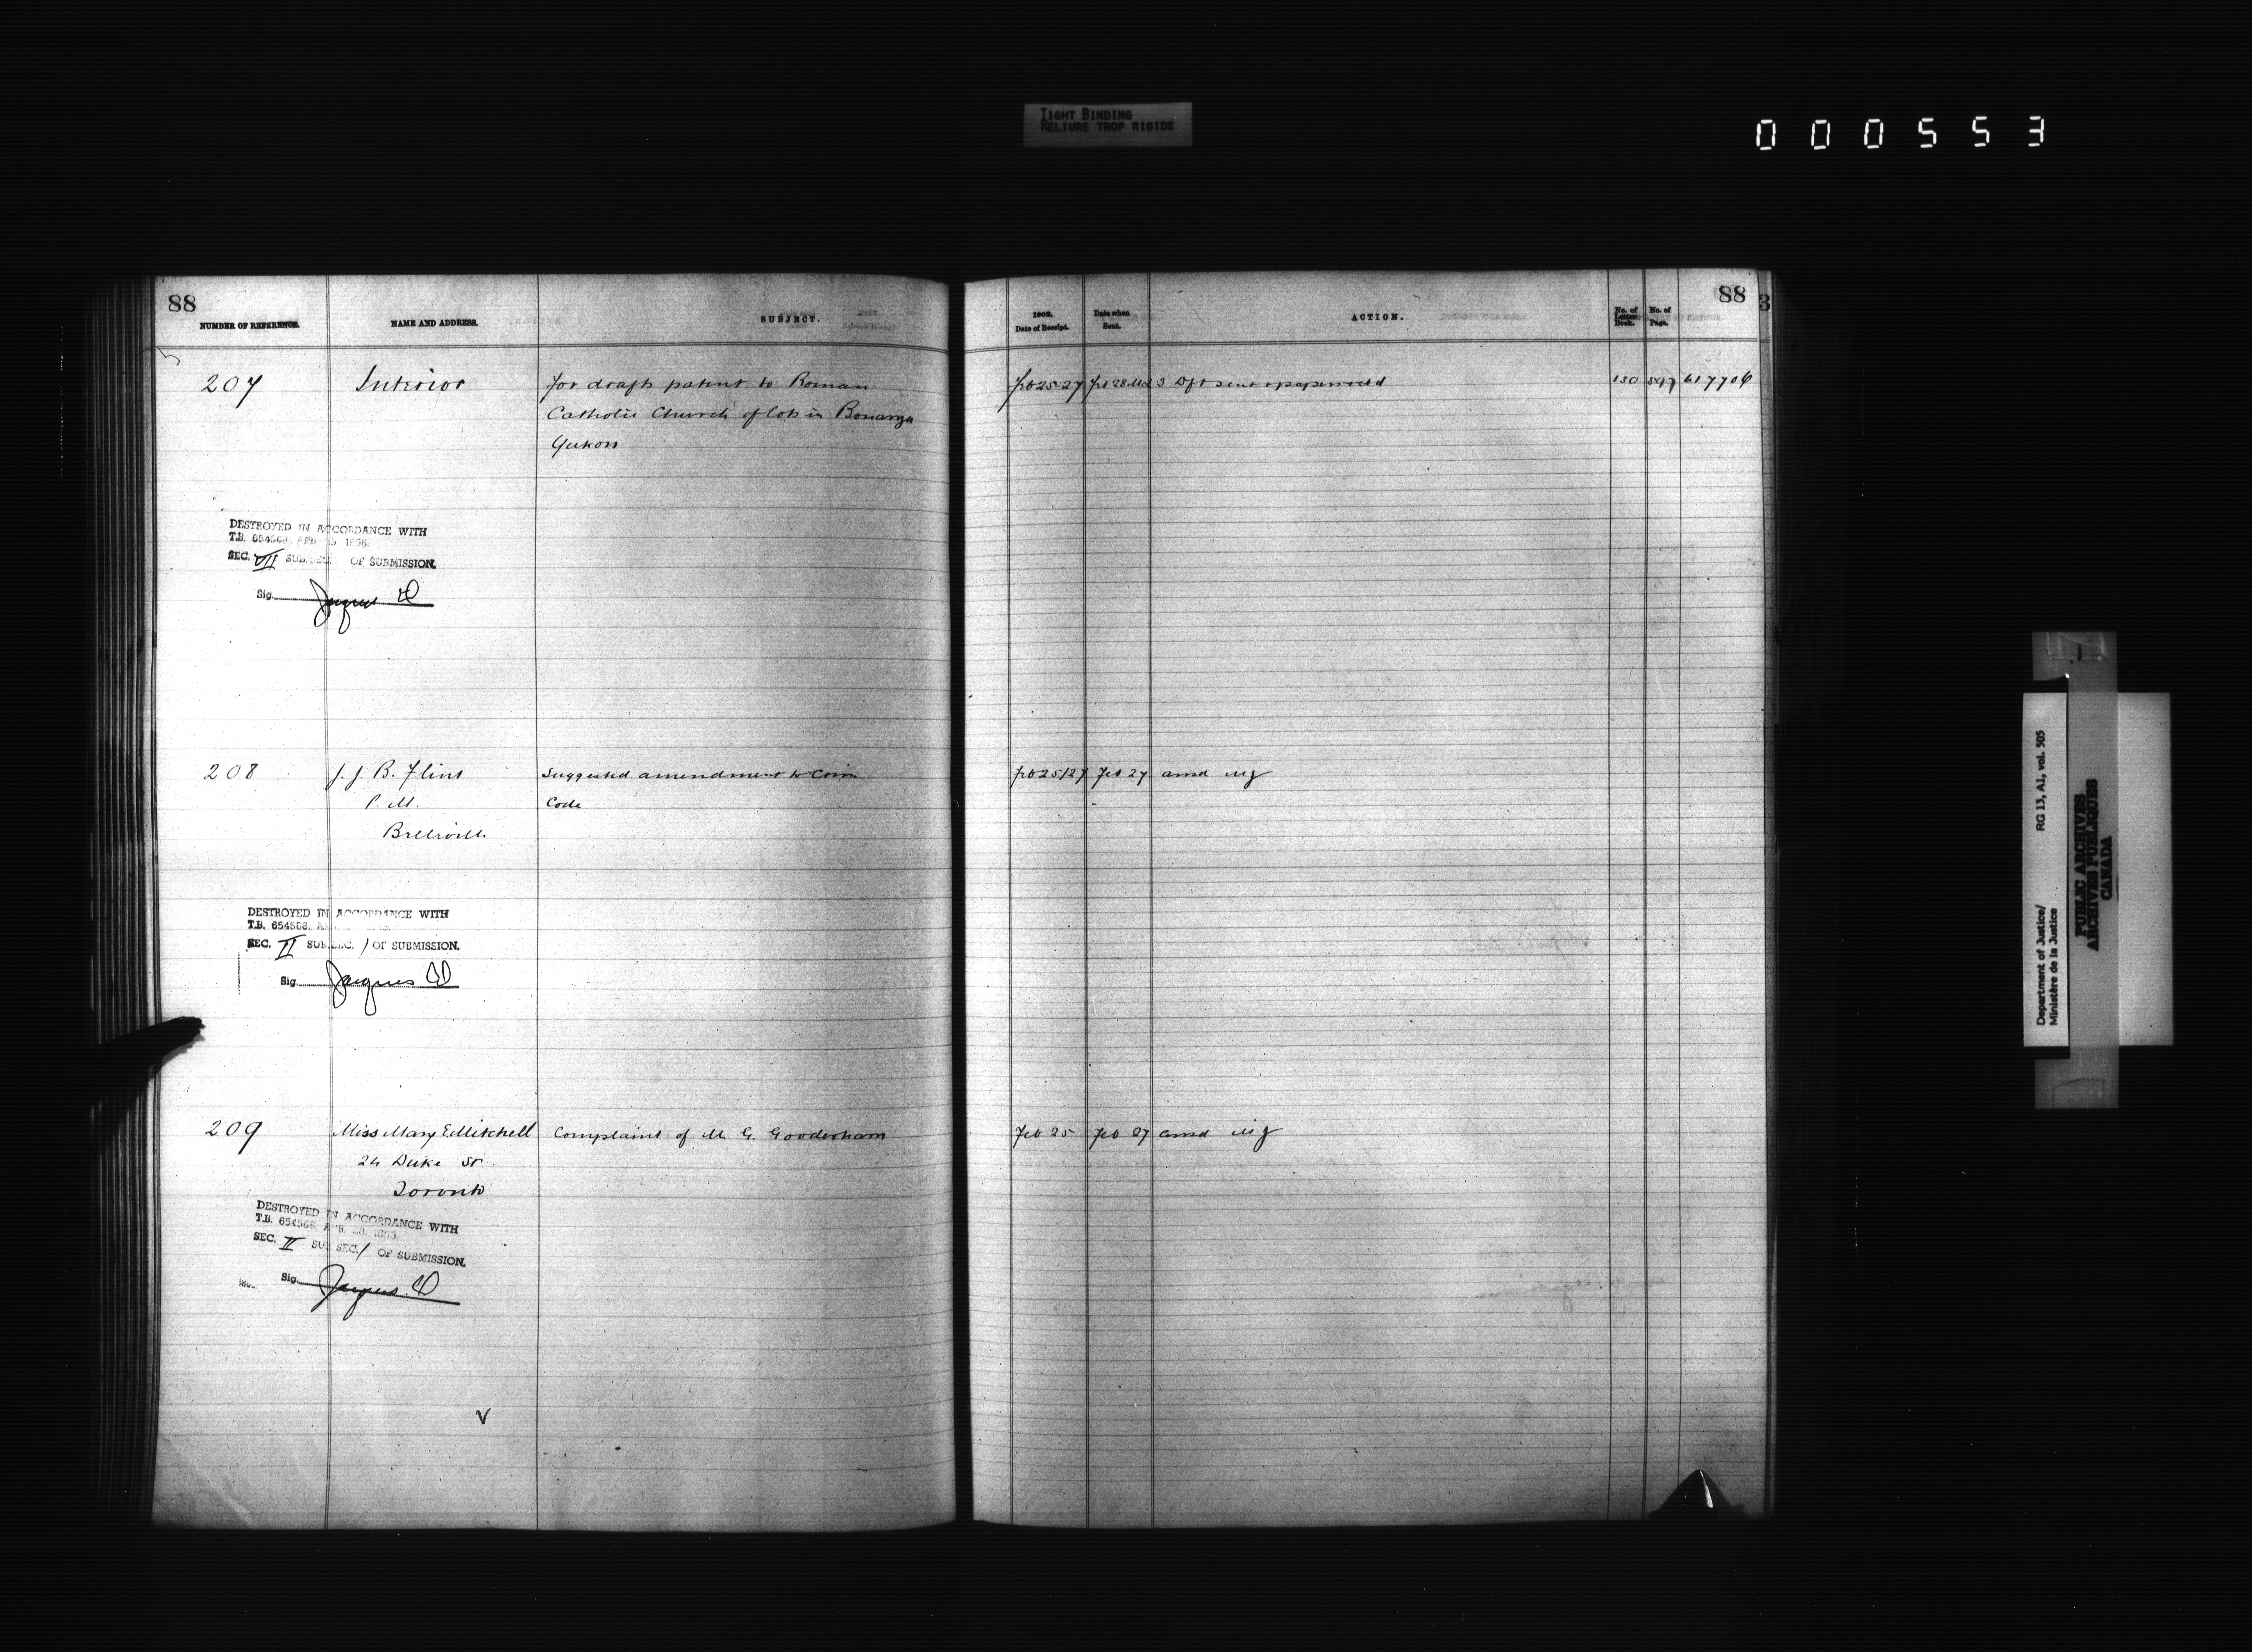 TIGHT BINDING
RELIURE TROP RIGIDE
000553
88
NUMBER OF REFERENCE. NAME AND ADDRESS. SUBJECT.
207 Interior for draft patent to Roman
Catholic Church of lots in Bonanza
Yukon
DESTROYED IN ACCORDANCE WITH
T.B. 654568, APR.
SEC. VII SUB. SEC. OF SUBMISSION.
Sig. Jacques
208 J. J. B. Flint Suggested amendment to Crim
P. M. Code
Belleville
DESTROYED IN ACCORDANCE WITH
T.B. 654568,
SEC. II SUB SEC. 1 OF SUBMISSION.
Sig. Jacques
209 Miss Mary E. Mitchell Complaint of M. G. Gooderham
24 Duke St
Toronto
DESTROYED IN ACCORDANCE WITH
T.B. 654568, APR.
SEC. II SUB SEC. 1 OF SUBMISSION.
Sig. Jacques
V
88
3
1902.
Date of Receipt. Date when Sent. ACTION. No. of Letter Book. No. of Page.
Feb 25 27 Feb 28 3 Dft sent 130 597
Feb 25/27 Feb 27 ansd MJ
Feb 25 Feb 27 ansd MJ
Department of Justice/ RG 13, A1, vol. 505
Ministère de la Justice
PUBLIC ARCHIVES
ARCHIVES PUBLIQUES
CANADA